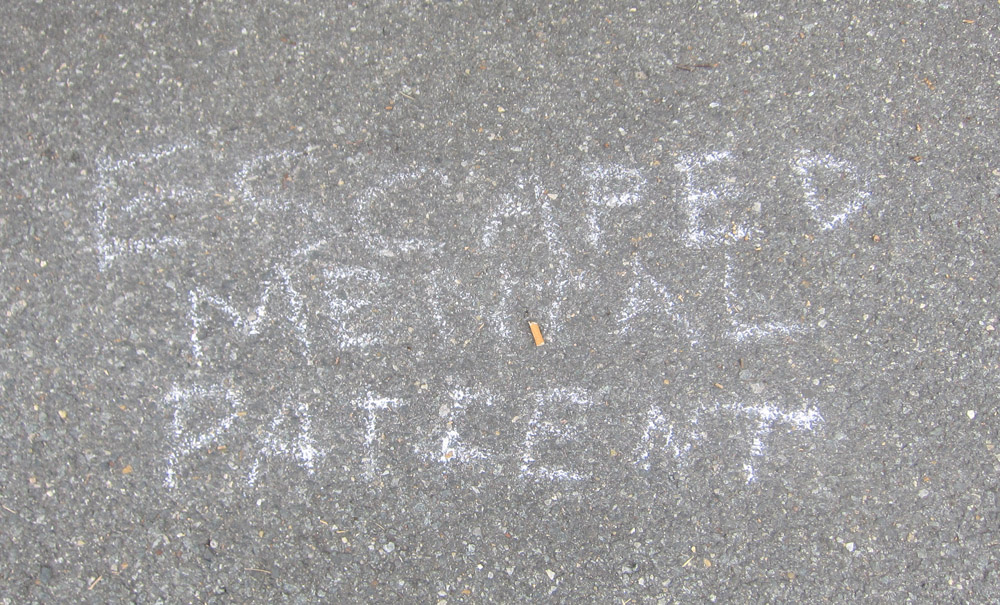 ESCAPED
MENTAL
PATIENT